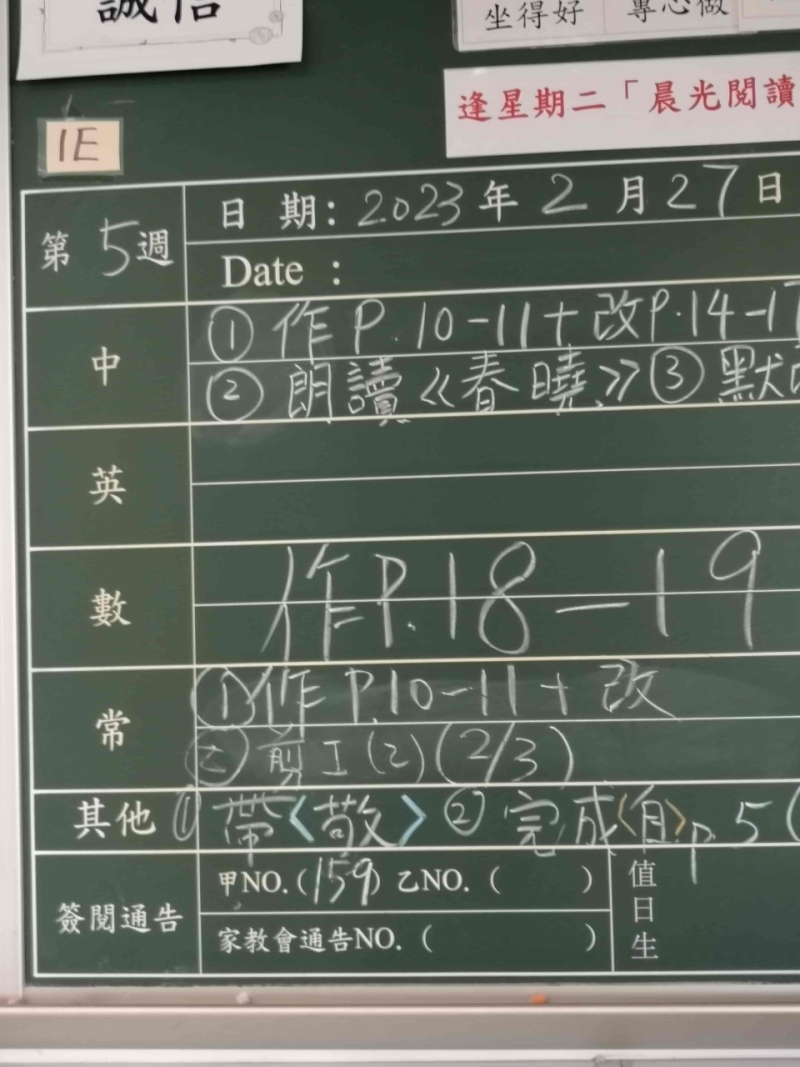 誠信
坐得好 專心做
逢星期二「晨光閱讀
1E
第5週
日期：2023年2月27日
Date：
中
①作P.10-11+改P.14-17
②朗讀《春曉》③默
英
數
作P.18-19
常
①作P.10-11+改
②剪工(2)(2/3)
其他
①帶〈敬〉②完成〈自〉p.5(
簽閱通告
甲NO.(159) 乙NO.( )
家教會通告NO.( )
值日生